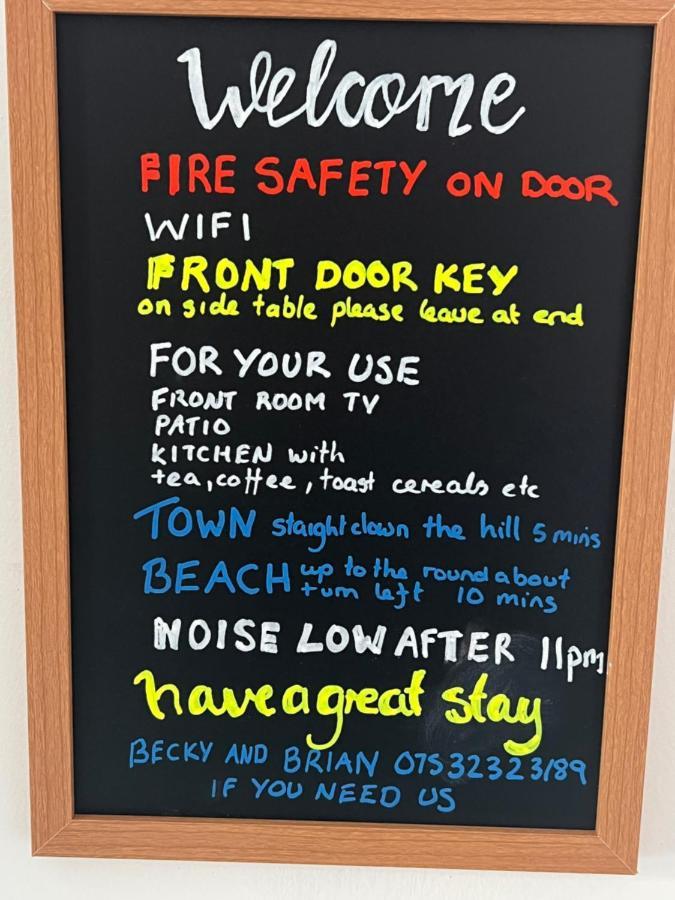 Welcome
FIRE SAFETY ON DOOR
WIFI
FRONT DOOR KEY
on side table please leave at end
FOR YOUR USE
FRONT ROOM TV
PATIO
KITCHEN with
tea, coffee, toast cereals etc
TOWN staight down the hill 5 mins
BEACH up to the round about
turn left 10 mins
NOISE LOW AFTER 11pm.
have a great stay
BECKY AND BRIAN 07532323189
IF YOU NEED US